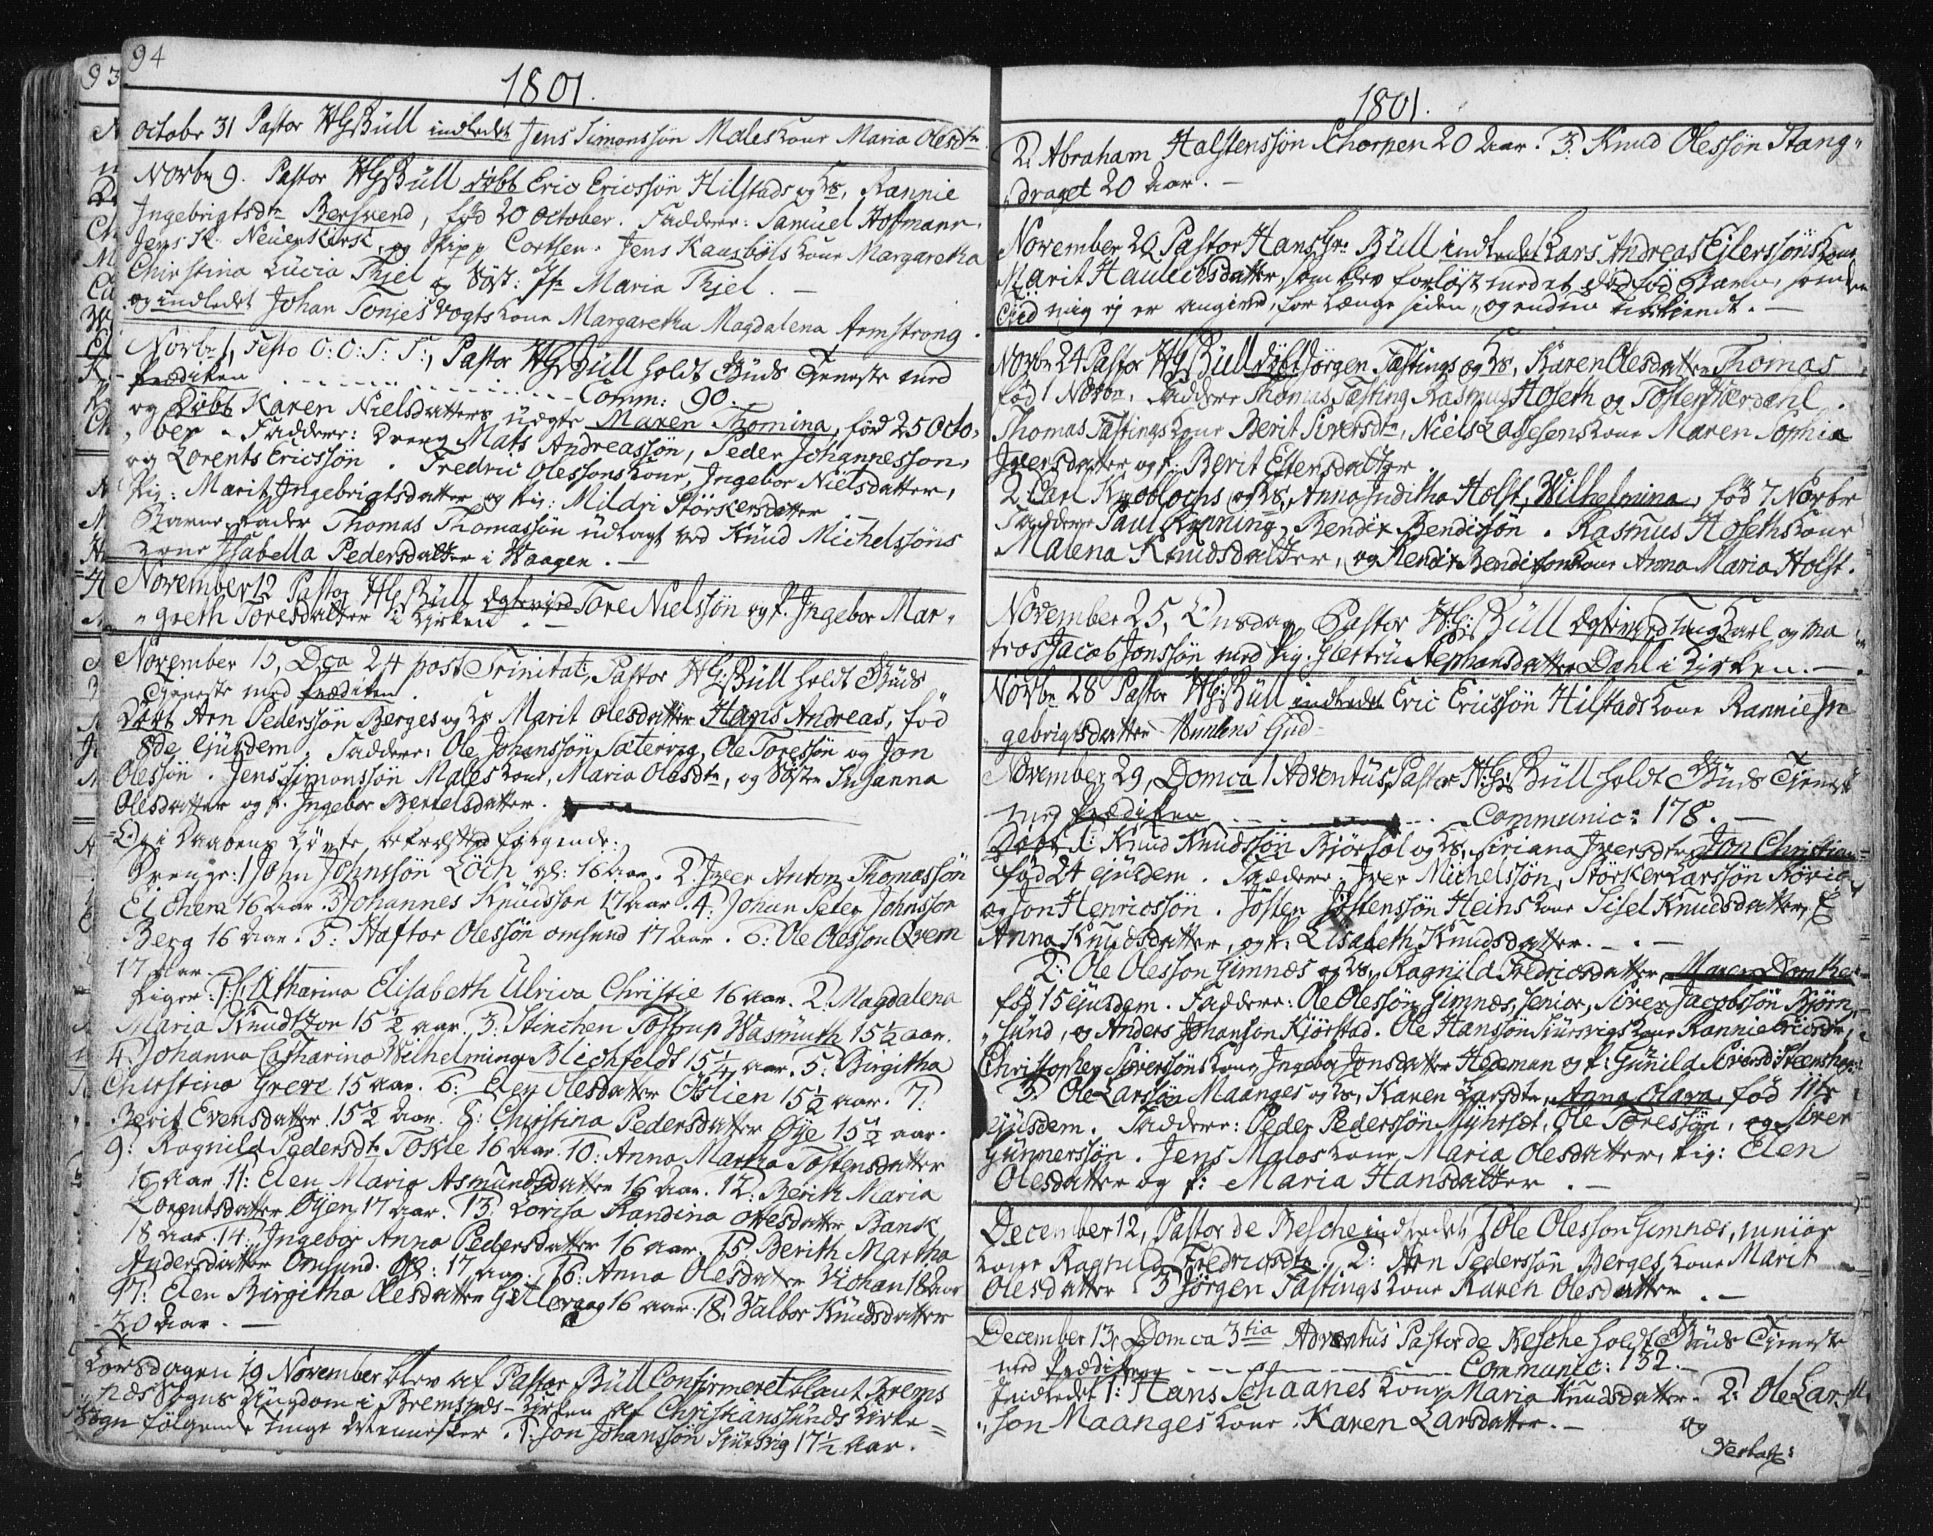 93
94
1801.
octobr 31 Pastor HGBüll indledet Jens Simonssøn Males kone Maria Olesdtr
Novbr 9. Pastor HGBüll døbt Eric Ericssøn Hilstads og hs. Rannie
Ingebrigtsdtr Bersvend, fød 20 October. Faddere: Samuel Hofmann
Jens K. Neuenkirk, og Skipp Cortsen. Jens Kaasbøls kone Margaretha
Christina Lucia Thiel og Søst: Jfr Maria Thiel. —
og indledet Johan Tonjes Vogts kone Margaretha Magdalena Armstrong.
Novbr 1, Festo O:O:S:S:, Pastor HGBüll holdt Guds Tjeneste med
Prædiken - - - - - - Comm: 90.
og døbt Karen Nielsdatters uægte Maren Thomina, fød 25 Octo-
ber - Faddere: Dreng Mats Andreassøn, Peder Johannessøn
og Lorents Ericssøn. Fredric Olessøns kone, Ingebor Nielsdatter,
Pig: Marit Ingebrigtsdatter og Pig: Mildri Størkersdatter
Barne Fader Thomas Thomassøn udlagt ved Knud Michelssøns
kone Isabella Pedersdatter i Vaagen. —
November 12 Pastor HGBüll Egteviet Tore Nielssøn og P. Ingebor Mar-
greth Toresdatter i Kirken. —
November 15, Dca 24 post Trinitat, Pastor HG:Büll holdt Guds
Tjeneste med Prædiken.
Døbt Arn Pederssøn Berges og hs Marit Olesdatter Hans Andreas, fød
8de ejusdem. Faddere: Ole Johanssøn Sætervig, Ole Toressøn og Jon
Olessøn. Jens Simonssøn Males kone, Maria Olesdtr, og Søstr Susanna
Olesdatter og P. Ingebor Bertelsdatter.
Og i Daabens Løfte befæsted følgende:
Drenge: 1 John Johnssøn Loch gl: 16 aar. 2. Iver Anton Thomassøn
Eichera 16 aar. 3 Johannes Knudssøn 17 aar. 4: Johan Peter Johnssøn
Berg 16 aar. 5: Haftor Olessøn omsund 17 aar. 6: Ole Olessøn Qvern
17 aar.
Piger: 1: Catharina Elisabeth Ulrica Christie 16 aar. 2. Magdalena
Maria Knudtzon 15 1/2 aar. 3. Stinchen Tostrup Wasmuth 15 1/2 aar.
4. Johanna Catharina Wilhelmina Blichfeldt 15 1/4 aar. 5. Birgitha
Christina Greve 15 aar. 6: Elen Olesdatter Oslien 15 1/2 aar. 7.
Berit Evensdatter 15 1/2 aar. 8: Christina Pedersdatter Øye 15 1/2 aar.
9: Ragnild Pedersdtr Tokle 16 aar. 10: Anna Martha Tostensdatter
16 aar. 11: Elen Maria Asmundsdatter 16 aar. 12: Berith Maria
Lorentsdatter Øyen 17 aar. 13: Lovisa Randina Ottesdatter Bansk
18 aar. 14: Ingebor Anna Pedersdatter 16 aar. 15. Berith Martha
Andersdatter Omsund. gl: 17 aar. 16: Anna Olesdatter 18 aar
17: Elen Birgitha Olesdatter 16 aar. 18: Valbor Knudsdatter
20 aar. —
Torsdagen 19 November blev af Pastor Büll Confirmeret blant Brems
næs Sogns Ungdom i Bremsnæs Kirken af Christianssunds Kirke-
Sogn følgende unge Mennesker. 1: Jon Johanssøn 17 1/2 aar.
1801.
2. Abraham Halstenssøn Thorpen 20 aar. 3. Knud Olessøn Stang-
draget 20 aar. —
November 20 Pastor Hans Gr. Büll indledet Lars Andreas Eilerssøns kone
Marit Hauledsdatter, som blev forløst med et dødfød Barn, som
mig ej er angived, for længe siden, og endnu ubekiendt. —
Novbr 24 Pastor HGBüll døbt Jørgen Fastings og hs. Karen Olesdatter Thomas
fød 1 Novbr. Faddere Thomas Fasting, Rasmus Hoseth og Tosten Værdahl.
Thomas Fastings kone Berit Siversdtr, Niels Lassesens kone Maren Sophia
Iversdatter og P. Berit Estensdatter
2 Carl Knoblochs og hs. Anna Juditha Holst, Wilhelmina, fød 7 Novbr
Faddere Paul Rynning, Bendix Bendixsøn. Rasmus Hoseths kone
Malena Knudsdatter, og Bendix Bendixsøns kone Anna Maria Holst.
November 25, Onsdag Pastor H:G:Büll Egteviet ung Karl og Ma-
tros Jacob Jonssøn med Pig. Gjertru Stephansdatter Dahl i Kirken. —
Novbr 28 Pastor HG:Büll indledet Eric Ericssøn Hilstads kone Rannie In
gebrigtsdatter
November 29, Domca 1 Adventus, Pastor H:G:Büll holdt Guds Tjeneste
med Prædiken - - - - - Communic: 178. —
Døbt 1: Knud Knudssøn Bjørsøl og hs. Siriana Iversdtr Jon Christian
fød 24 ejusdem. Faddere: Iver Michelssøn, Størker Larssøn
og Jon Henricssøn. Josten Jostenssøn Heins kone Sisel Knudsdatter, P
Anna Knudsdatter, og P. Lisabeth Knudsdatter. —
2: Ole Olessøn Gimnæs og hs. Ragnild Fredricsdatter Maren Dorthea
fød 15 ejusdem. Faddere: Ole Olessøn Gimnæs, senior, Siver Jacobssøn Bjørn
sund, og Anders Johanssøn Kjørstad. Ole Hanssøn kone Rannie Ericsdtr,
Christopher Siverssøns kone Ingebor Jonsdatter Hedeman og P. Gunild Siversd
3. Ole Larssøn Maanges og hs, Karen Larsdtr, Anna Olava, fød 11te
ejusdem. Faddere: Peder Pederssøn Myhrset, Ole Toressøn, og Siver
Gunnerssøn. Jens Males kone, Maria Olesdatter, Pig: Elen
Olesdatter og P: Maria Hansdatter. —
December 12, Pastor de Besche indledet 1 Ole Olessøn Gimnæs, junior
kone Ragnild Fredricsdtr. 2: Arn Pederssøn Berges kone Marit
Olesdatter 3 Jørgen Fastings kone Karen Olesdatter. —
December 13, Domca 3tia Adventus Pastor de Besche holdt Guds Tjeneste
med Prædiken - - - - - Communic: 132. —
Indledet 1: Hans Schaanes kone Maria Knudsdatter. 2. Ole Lars-
søn Maanges kone Karen Larsdatter. —
og